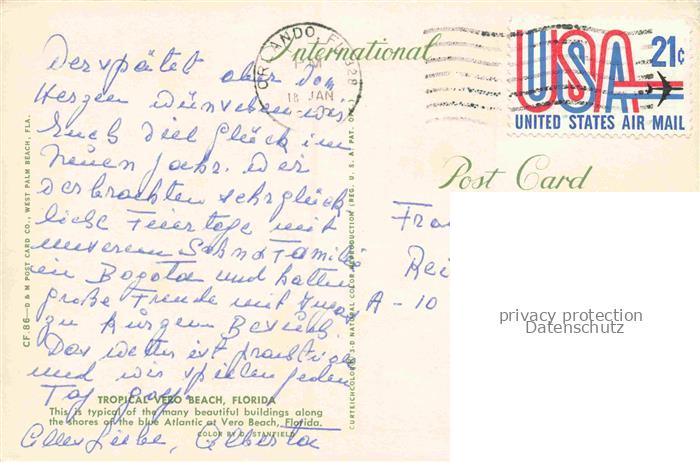 International
ORLANDO, FL 328
PM
18 JAN
USA 21c
UNITED STATES AIR MAIL
Post Card
Verspätet aber von
Herzen wünschen wir
Euch viel Glück im
neuen Jahr. Wir
verbrachten sehr glück
liche Feiertage mit
unserem Sohn & Familie
in Bogota und hatten
große Freude mit
zu kurzem Besuch.
Das Wetter ist prachtvoll
und wir spielen jeden
Tag golf.
Alles Liebe, Alberta
TROPICAL VERO BEACH, FLORIDA
This is typical of the many beautiful buildings along
the shores of the blue Atlantic at Vero Beach, Florida.
COLOR BY D. STANFIELD
CF. 86—D & M POST CARD CO., WEST PALM BEACH, FLA.
CURTEICHCOLOR® 3-D NATURAL COLOR REPRODUCTION (REG. U. S. A. PAT. OFF.)
Fra
Rei
A - 10
privacy protection
Datenschutz